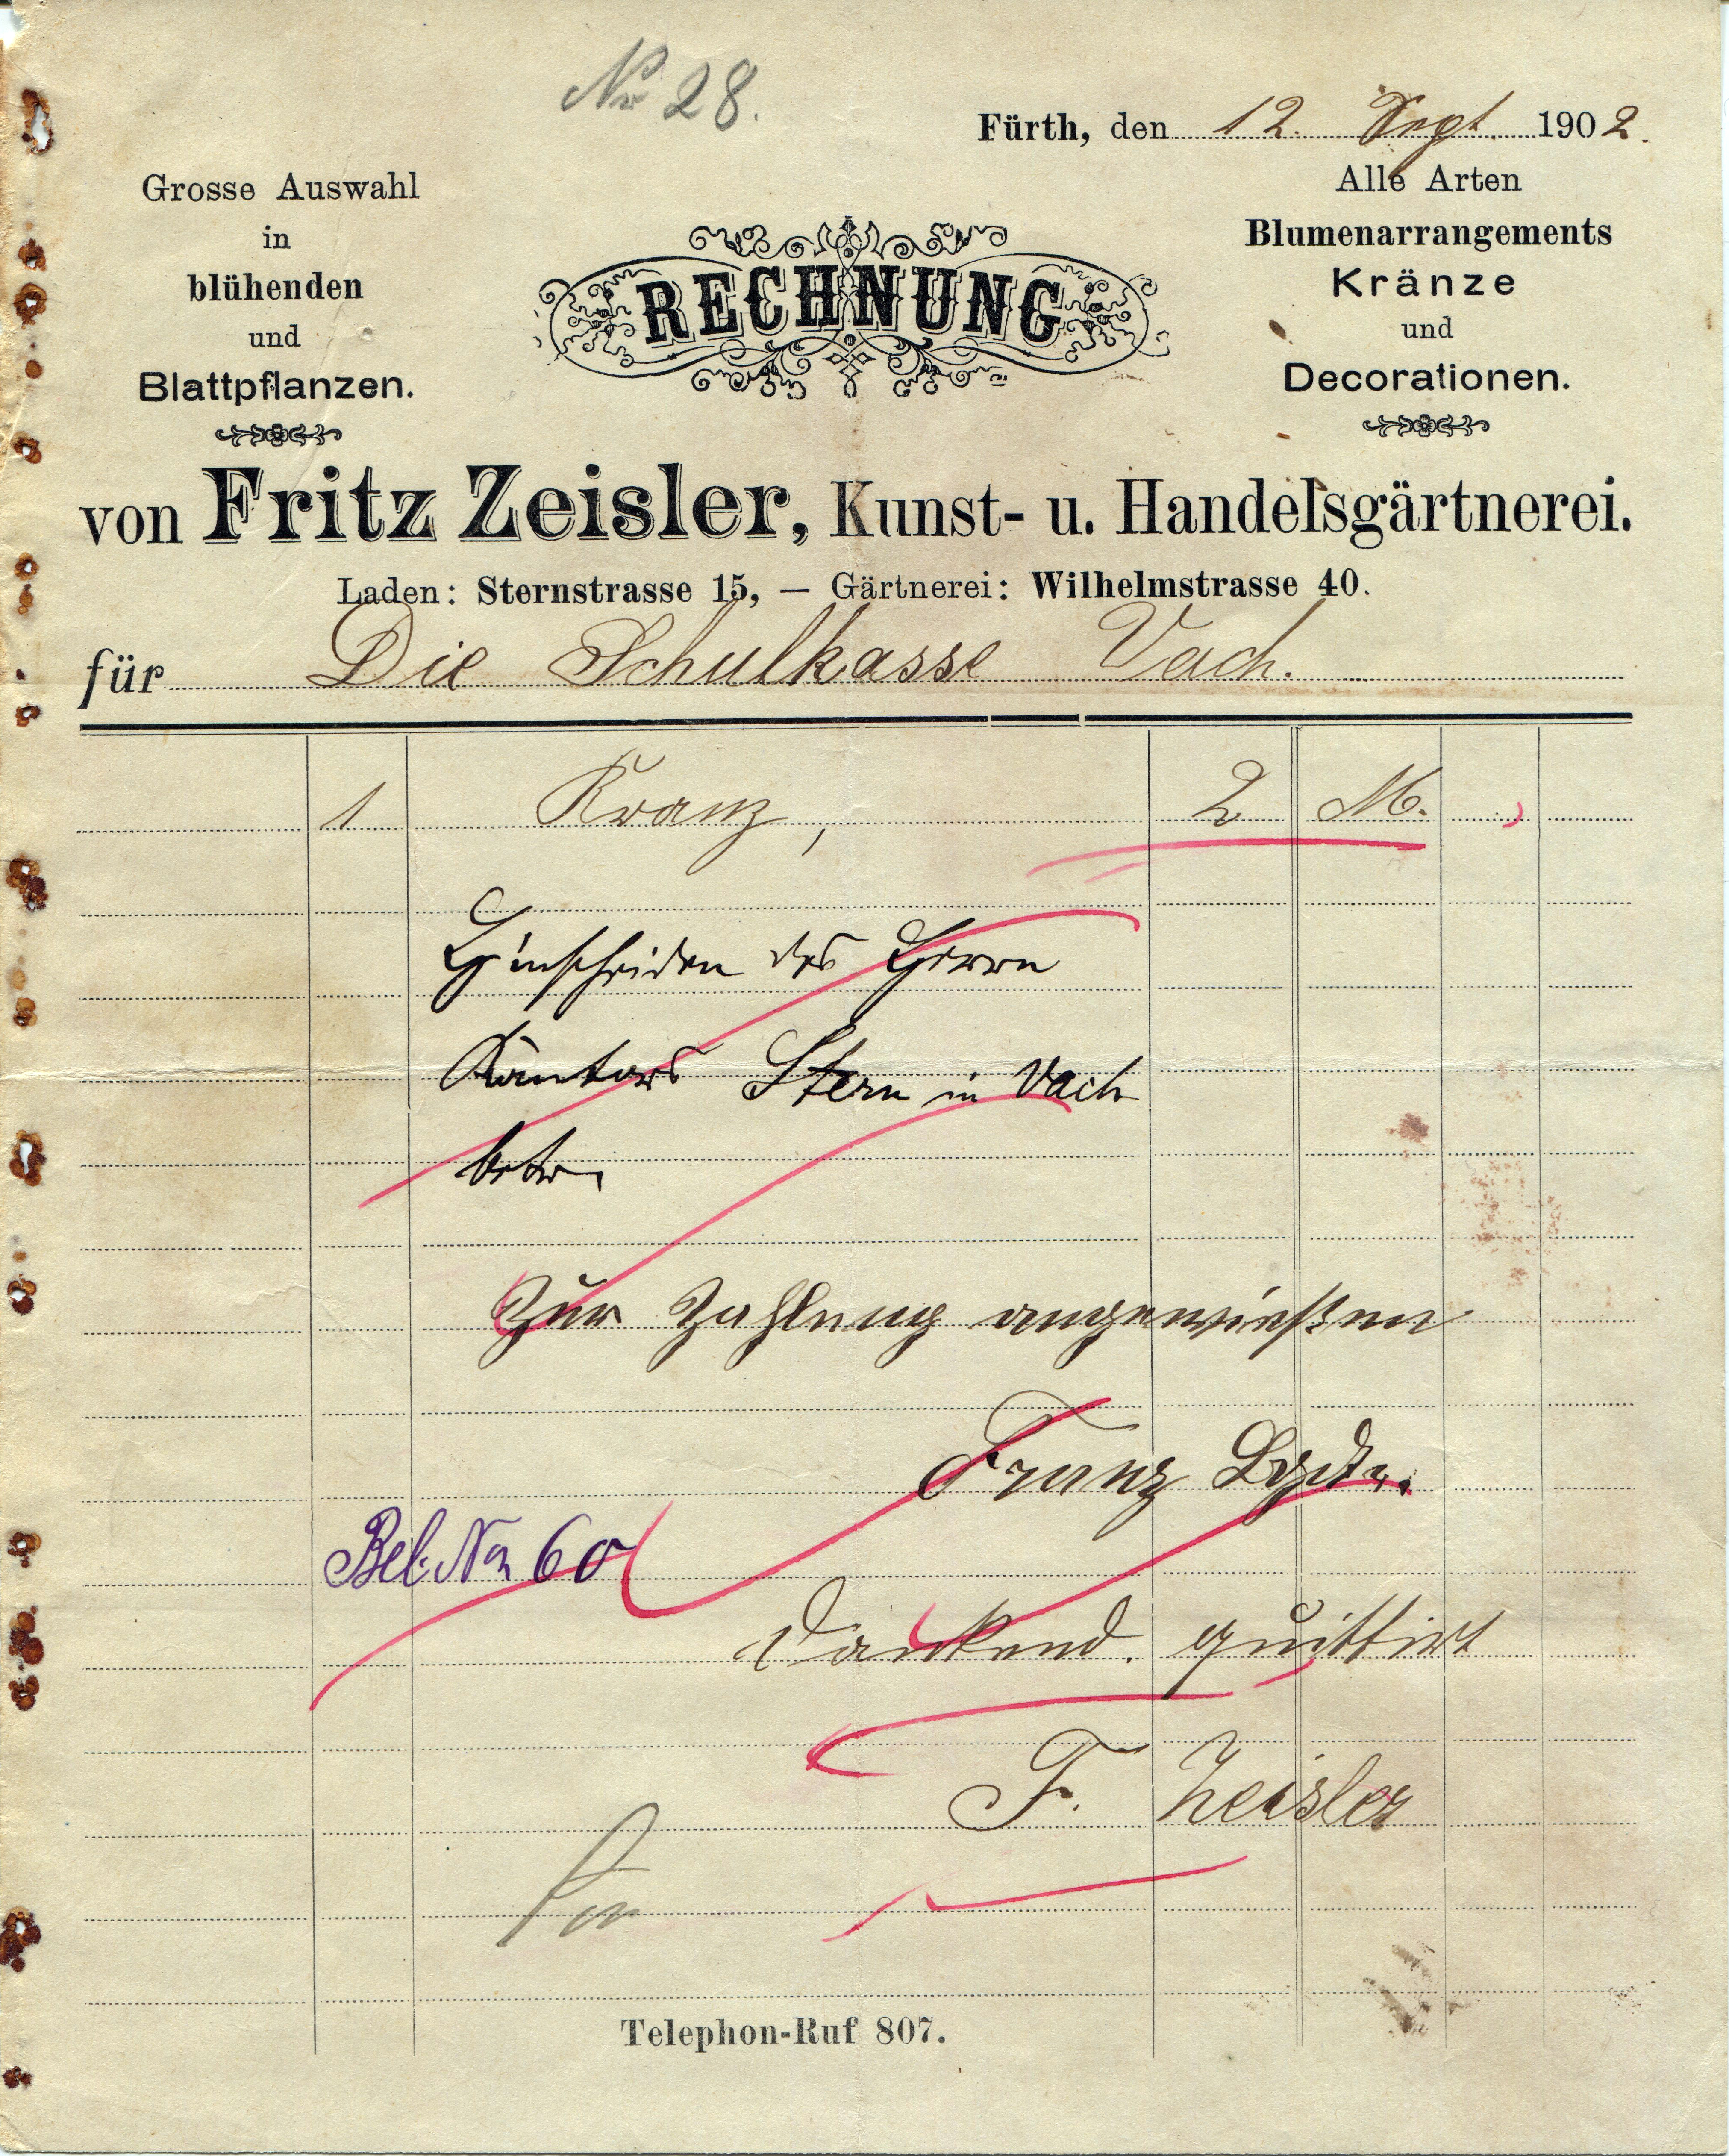 No 28.
Fürth, den 12. Sept. 1902.
Grosse Auswahl
in
blühenden
und
Blattpflanzen.
RECHNUNG
Alle Arten
Blumenarrangements
Kränze
und
Decorationen.
von Fritz Zeisler, Kunst- u. Handelsgärtnerei.
Laden: Sternstrasse 15, — Gärtnerei: Wilhelmstrasse 40.
für Die Schulkasse Vach.
1 Kranz, 2 M.
Hinscheiden des Herrn
Kantors Stern in Vach
betr.
Zur Zahlung angewießen
Franz
Bel. No 60
Dankend. quittirt
F. Zeisler
Telephon-Ruf 807.